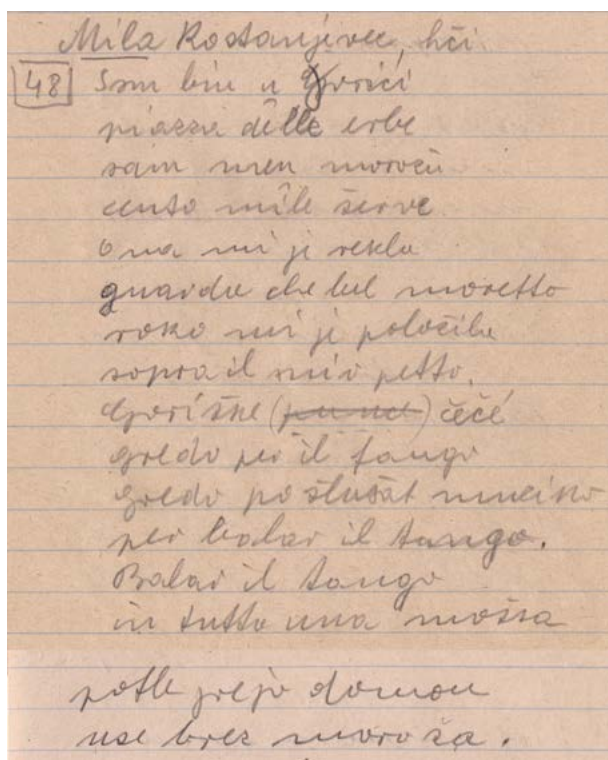 Mila Kostanjevec, hči
48 Sem biu u Gorici
piazza delle erbe
sam men moroču
cento mile serve
Ona mi je rekla
guarda che bel moretto
roko mi je položila
sopra il mio petto.
Goriške (punce) čeče
gredo per il fango
gredo poslušat muziko
per balar il tango.
Balar il tango
in tutto una mossa
potle grejo domou
use brez moroža.